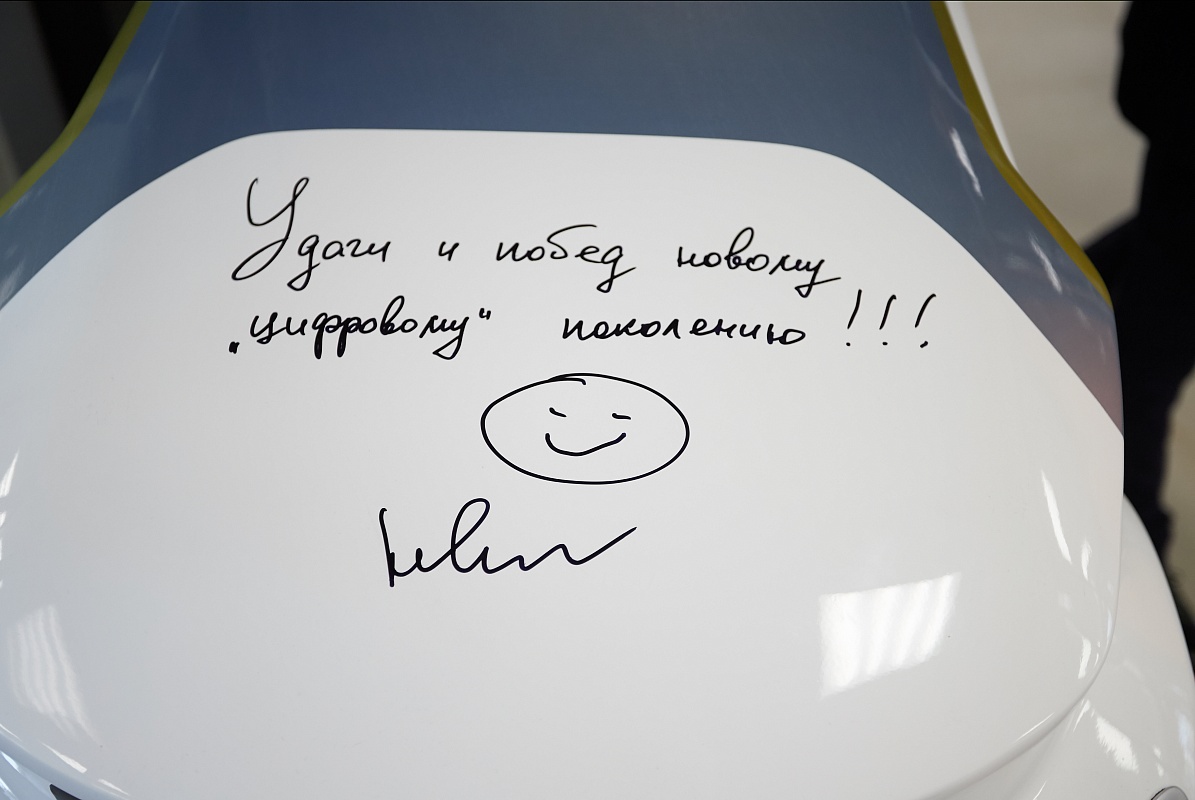 Удачи и побед новому
„цифровому“ поколению!!!